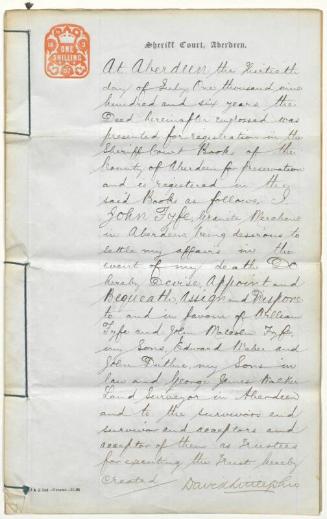 ONE
SHILLING
Sheriff Court, Aberdeen.
At Aberdeen the thirtieth
day of July One thousand nine
hundred and six years the
Deed hereinafter engrossed was
presented for registration in the
Sheriff Court Books of the
County of Aberdeen for preservation
and is registered in the
said Books as follows. I
John Fyfe, Granite Merchant
in Aberdeen being desirous to
settle my affairs in the
event of my death Do
hereby Devise, Appoint and
Bequeath, Assign and Dispone
to and in favour of William
Fyfe and John Malcolm Fyfe
my Sons, Edward Weber and
John Duthie, my Sons in
law and George James Walker
Land Surveyor in Aberdeen
and to the survivors and
survivor and acceptors and
acceptor of them as Trustees
for executing the Trust hereby
created
David